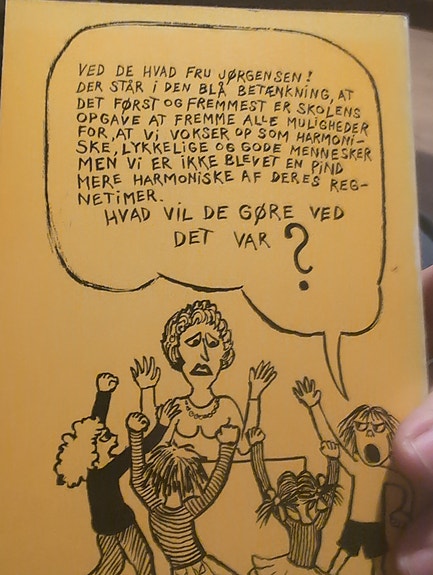 VED DE HVAD FRU JØRGENSEN!
DER STÅR I DEN BLÅ BETÆNKNING, AT
DET FØRST OG FREMMEST ER SKOLENS
OPGAVE AT FREMME ALLE MULIGHEDER
FOR, AT VI VOKSER OP SOM HARMONI-
SKE, LYKKELIGE OG GODE MENNESKER
MEN VI ER IKKE BLEVET EN PIND
MERE HARMONISKE AF DERES REG-
NETIMER.
HVAD VIL DE GØRE VED
DET VAR ?